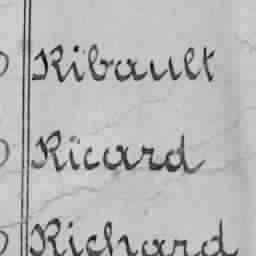 Ribault
Ricard
Richard